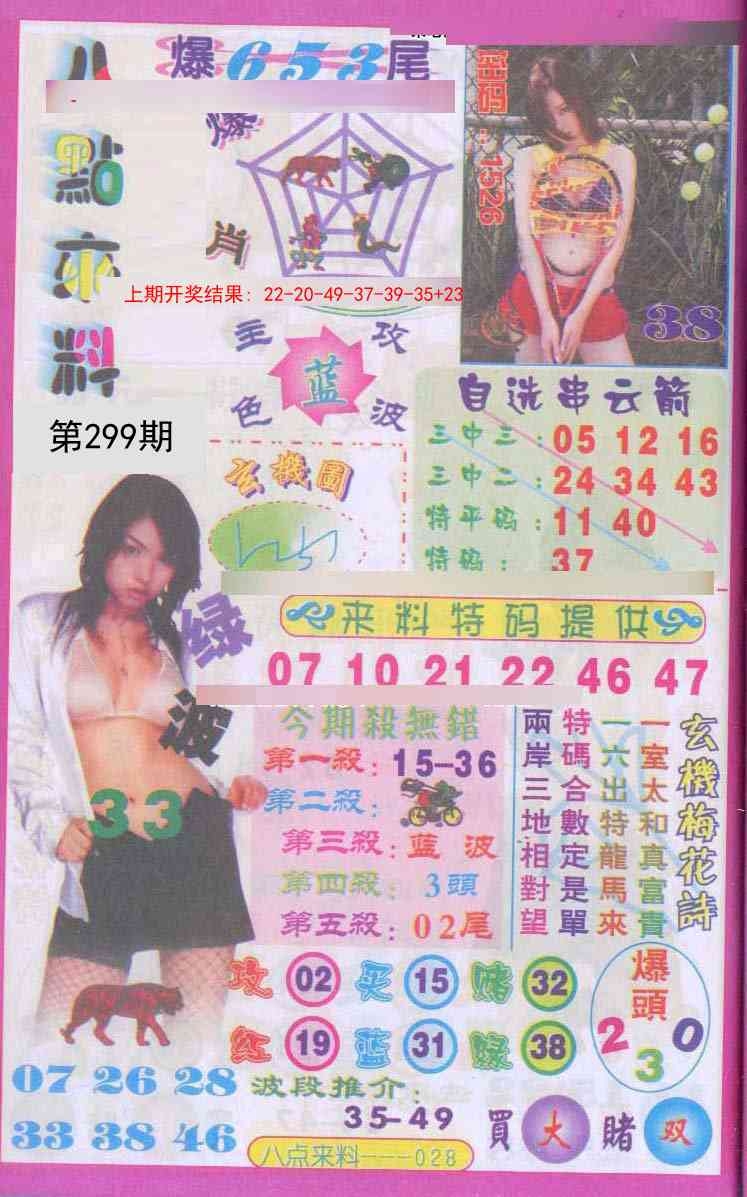 爆653尾
八點來料
爆肖
上期开奖结果: 22-20-49-37-39-35+23
:1526
38
主攻
蓝
色波
第299期
玄機圖
自选串云箭
三中三:05 12 16
三中二:24 34 43
特平码:11 40
特码:37
来料特码提供
07 10 21 22 46 47
绿波
33
今期殺無錯
第一殺:15-36
第二殺:
第三殺:蓝波
第四殺:3頭
第五殺:02尾
玄機梅花詩
一室太和真富貴
一六出特龍馬來
特碼合數定是單
兩岸三地相對望
攻 02 买 15 赌 32
红 19 蓝 31 绿 38
爆頭
2 3 0
07 26 28
33 38 46
波段推介:
35-49
買大賭双
八点来料---028